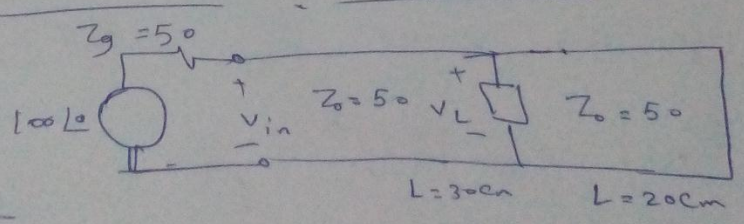 Zg = 50
100 ∠0
+
Vin
-
Z₀ = 50
+
VL
-
Z₀ = 50
L = 30cm
L = 20cm